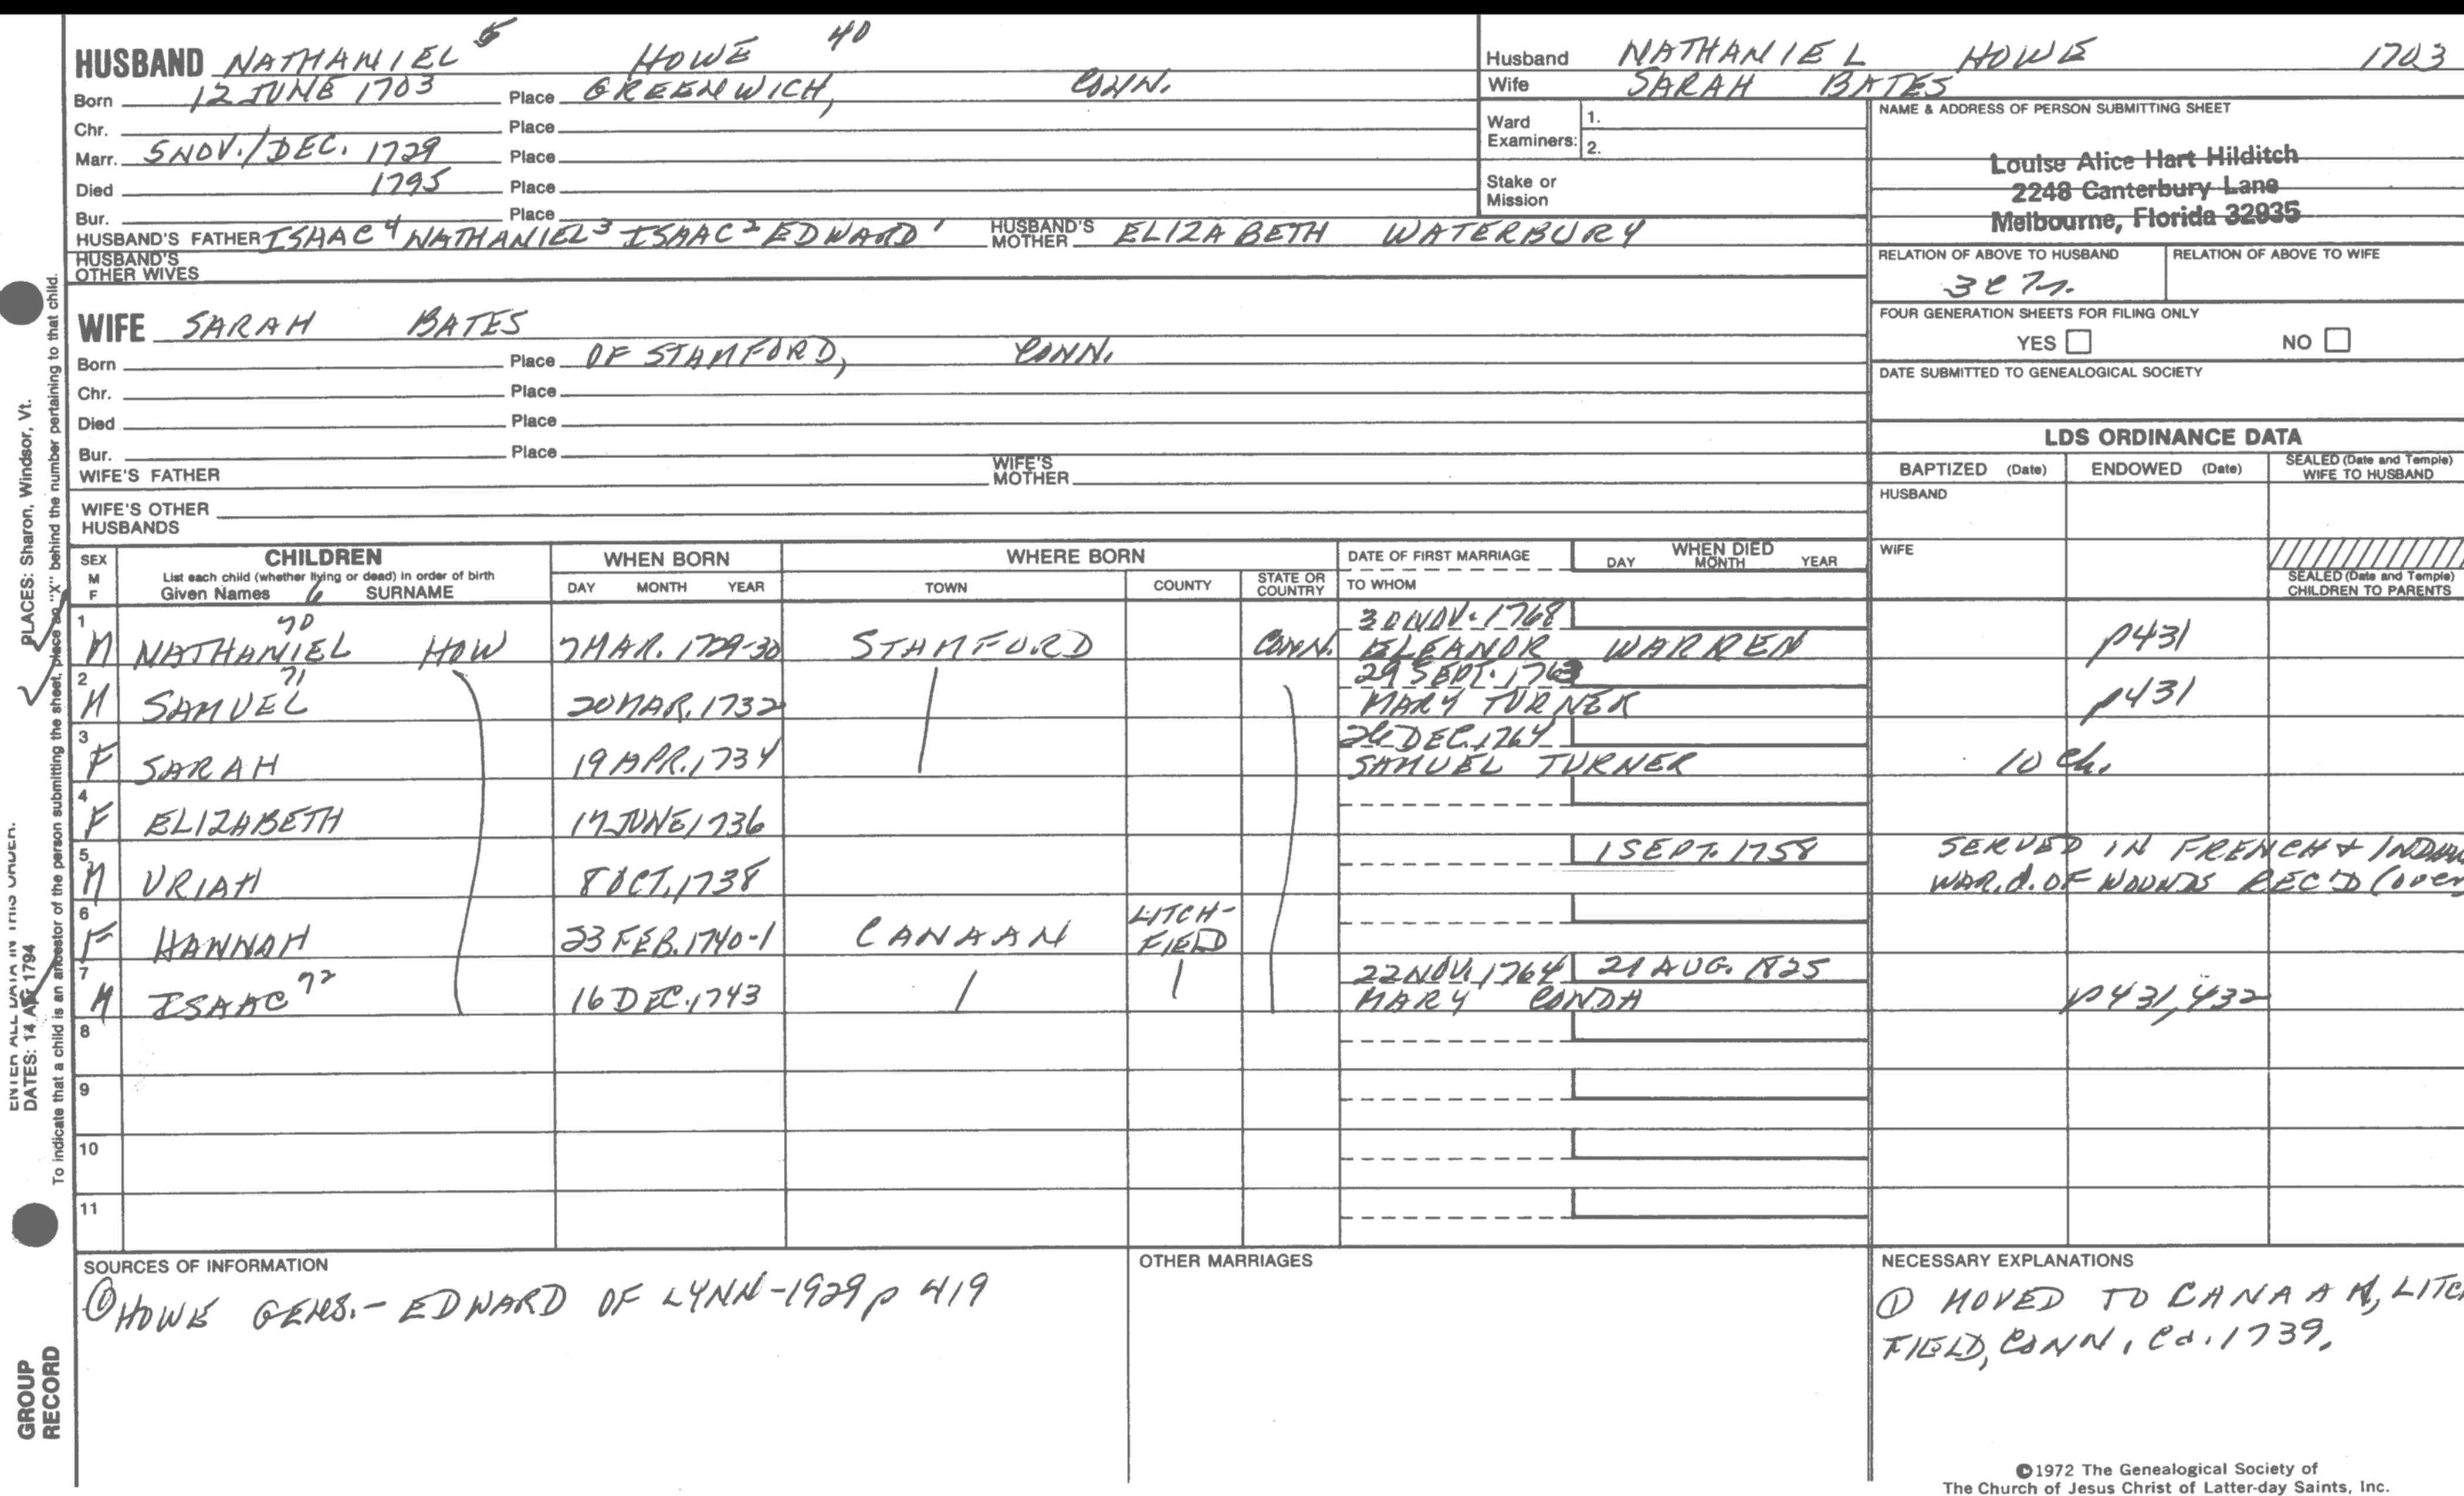 HUSBAND NATHANIEL 5 HOWE 40
Born 12 JUNE 1703 Place GREENWICH, CONN.
Chr. Place
Marr. 5 NOV./DEC. 1729 Place
Died 1795 Place
Bur. Place
HUSBAND'S FATHER ISAAC 4 NATHANIEL 3 ISAAC 2 EDWARD 1 HUSBAND'S MOTHER ELIZABETH WATERBURY
HUSBAND'S OTHER WIVES
WIFE SARAH BATES
Born Place OF STAMFORD, CONN.
Chr. Place
Died Place
Bur. Place
WIFE'S FATHER WIFE'S MOTHER
WIFE'S OTHER HUSBANDS
Husband NATHANIEL HOWE 1703
Wife SARAH BATES
Ward Examiners: 1.
2.
Stake or Mission
NAME & ADDRESS OF PERSON SUBMITTING SHEET
Louise Alice Hart Hilditch
2248 Canterbury Lane
Melbourne, Florida 32935
RELATION OF ABOVE TO HUSBAND RELATION OF ABOVE TO WIFE
FOUR GENERATION SHEETS FOR FILING ONLY
YES NO
DATE SUBMITTED TO GENEALOGICAL SOCIETY
LDS ORDINANCE DATA
BAPTIZED (Date) ENDOWED (Date) SEALED (Date and Temple) WIFE TO HUSBAND
HUSBAND
WIFE
SEALED (Date and Temple) CHILDREN TO PARENTS
SEX M F CHILDREN WHEN BORN WHERE BORN DATE OF FIRST MARRIAGE WHEN DIED
List each child (whether living or dead) in order of birth
Given Names 6 SURNAME DAY MONTH YEAR TOWN COUNTY STATE OR COUNTRY TO WHOM DAY MONTH YEAR
1 70 30 NOV. 1768
M NATHANIEL HOW 7 MAR. 1729-30 STAMFORD CONN. ELEANOR WARREN p431
2 71 29 SEPT. 1763
M SAMUEL 20 MAR. 1732 MARY TURNER p431
3 26 DEC. 1764
F SARAH 19 APR. 1734 SAMUEL TURNER 10 ch.
4
F ELIZABETH 17 JUNE 1736
5 1 SEPT. 1758 SERVED IN FRENCH & INDIAN
M URIAH 8 OCT. 1738 WAR. d. OF WOUNDS REC'D (over
6
F HANNAH 23 FEB. 1740-1 CANAAN LITCH-FIELD
7 72 22 NOV. 1764 21 AUG. 1825
M ISAAC 16 DEC. 1743 MARY CONDA p431,432
8
9
10
11
SOURCES OF INFORMATION
① HOWE GENS.- EDWARD OF LYNN-1929 p 419
OTHER MARRIAGES
NECESSARY EXPLANATIONS
① MOVED TO CANAAN, LITCH
FIELD, CONN. ca. 1739.
©1972 The Genealogical Society of
The Church of Jesus Christ of Latter-day Saints, Inc.
PLACES: Sharon, Windsor, Vt.
To indicate that a child is an ancestor of the person submitting the sheet, place an "X" behind the number pertaining to that child.
ENTER ALL DATA IN THIS ORDER.
DATES: 14 Apr 1794
GROUP
RECORD